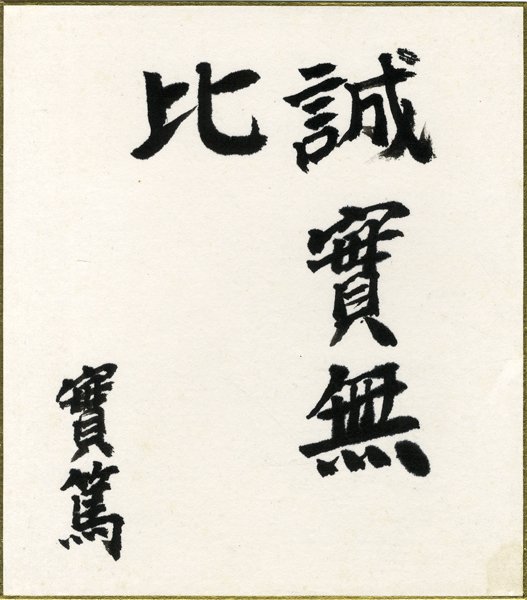 誠實無
比
實篤